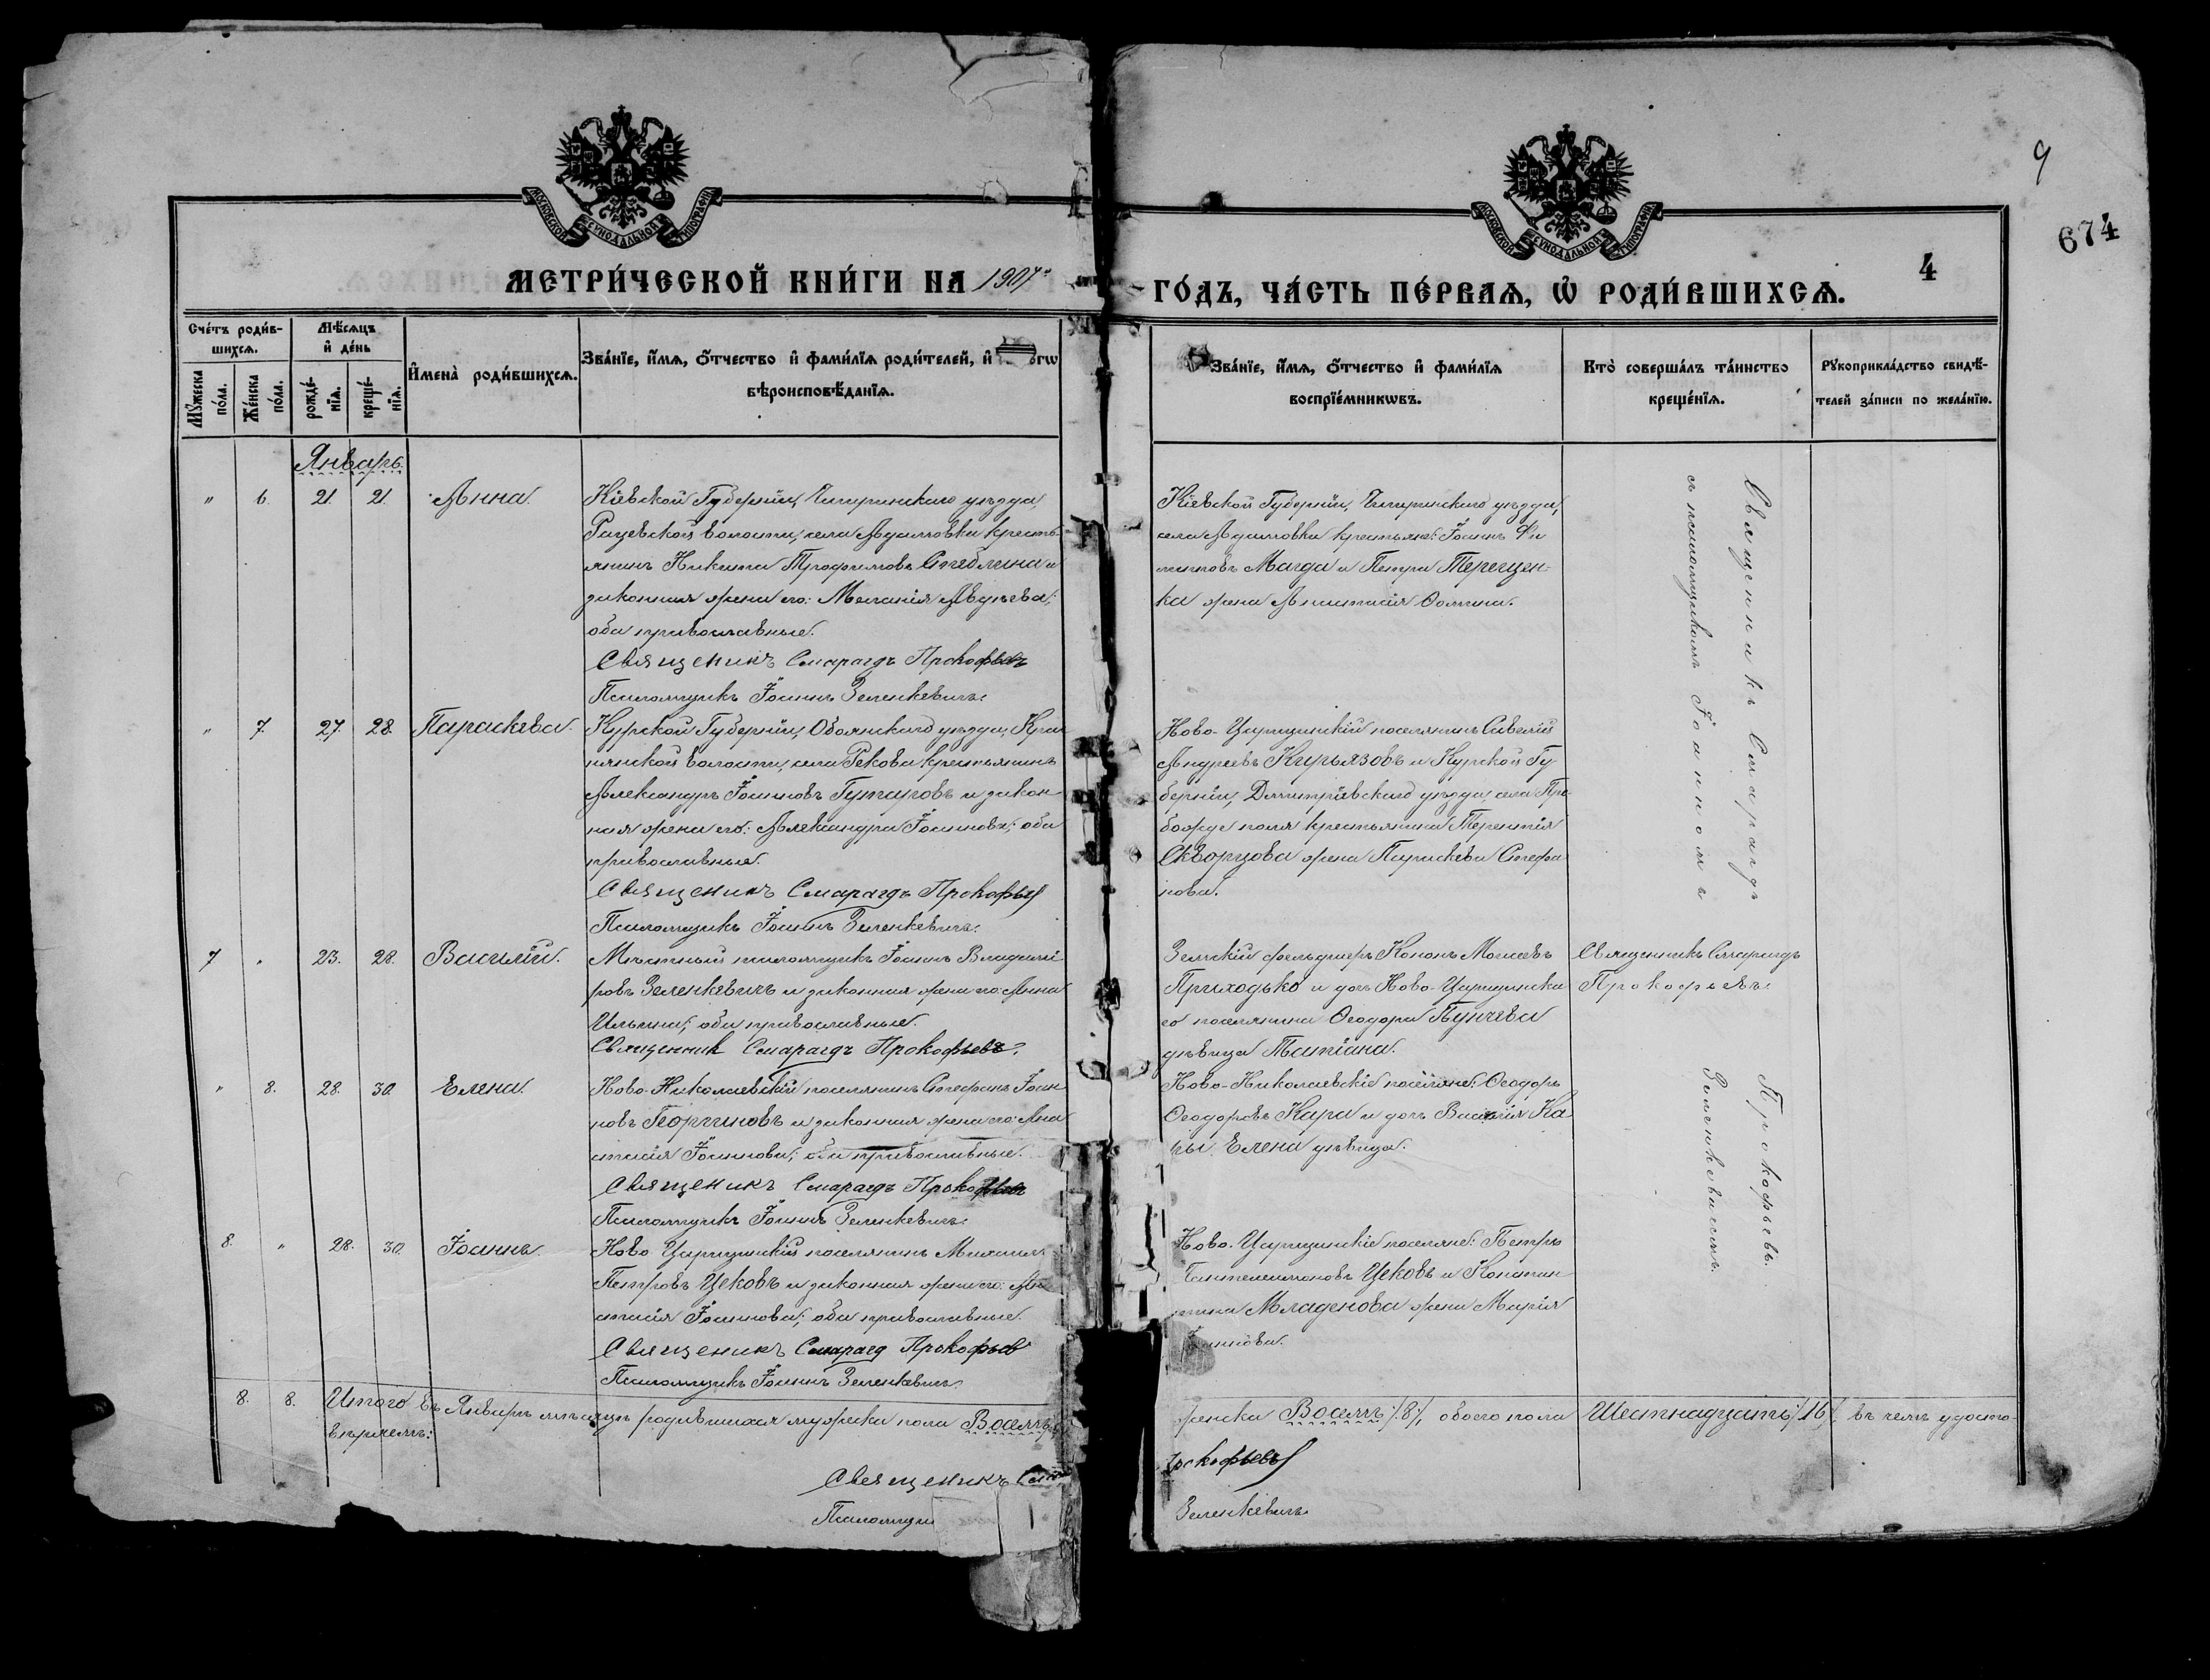 9
674
МОСКОВСКОЙ СѴНОДАЛЬНОЙ ТИПОГРАФІИ
МОСКОВСКОЙ СѴНОДАЛЬНОЙ ТИПОГРАФІИ
МЕТРИ́ЧЕСКОЙ КНИ́ГИ НА 1907й
ГО́ДЪ, ЧА́СТЬ ПЕ́РВАѦ, Ѡ҆ РОДИ́ВШИХСѦ. 4
Сче́тъ роди́в-
шихсѧ.
Мѣ́сѧцъ
и҆ де́нь
Мꙋ́жеска по́ла.
Же́нска по́ла.
рожде́-нїѧ.
креще́-нїѧ.
И҆мена̀ роди́вшихсѧ.
Зва́нїе, и҆́мѧ, ѻ҆́тчество и҆ фами́лїѧ роди́телей, и҆ огѡ
вѣроисповѣ́данїѧ.
Зва́нїе, и҆́мѧ, ѻ҆́тчество и҆ фами́лїѧ
воспрїе́мникѡвъ.
Кто̀ соверша́лъ та́инство
креще́нїѧ.
Рꙋкоприкла́дство свидѣ́-
телей за́писи по жела́нїю.
Январь.
" 6. 21. 21. Анна.
Кіевской Губерніи, Чигиринскаго уѣзда,
Рацевской волости, села Адамовки кресть-
янинъ Никита Трофимовъ Стеблина и
законная жена его: Меланія Авдѣева;
оба православные.
Священикъ Смарагдъ Прокофьевъ
Псаломщикъ Іоаннъ Зеленкевичъ.
Кіевской Губерніи, Чигиринскаго уѣзда,
села Адамовки крестьяне: Іоаннъ Фи
липповъ Магда и Петра Терещен-
ка жена Анастасія Фомина.
Священникъ Смарагдъ Прокофьевъ
съ псаломщикомъ Іоанномъ Зеленкевичемъ.
" 7. 27. 28. Параскева.
Курской Губерніи, Обоянскаго уѣзда,
волости, села крестьянинъ
Александръ Іоанновъ и закон-
ная жена его: Александра Іоаннова; оба
православные.
Священикъ Смарагдъ Прокофьев
Псаломщикъ Іоаннъ Зеленкевичъ.
Ново-Царицинскій поселянинъ Савелій
Андреевъ Кирьязовъ и Курской Гу
берніи, Дмитріевскаго уѣзда, села
поля крестьянина Терентія
Скворцова жена Параскева Стефа
нова.
7 " 23. 28. Василій.
Мѣстный псаломщикъ Іоаннъ Владимі
ровъ Зеленкевичъ и законная жена его: Анна
Ильина; оба православные.
Священник Смарагдъ Прокофьевъ.
Земскій фельдшеръ Кононъ Моисеевъ
Приходько и дочь Ново-Царицинска
го поселянина Ѳеодора Пунчева
дѣвица Татіана.
Священникъ Смарагдъ
Прокофьевъ.
" 8. 28. 30. Елена.
Ново-Николаевскій поселянинъ Стефанъ Іоан
новъ Георгиновъ и законная жена его: Ана
стасія Іоаннова; оба православные.
Священикъ Смарагдъ Прокофьев
Псаломщикъ Іоаннъ Зеленкевичъ.
Ново-Николаевскіе поселяне: Ѳеодоръ
Ѳеодоровъ Кара и дочь Василія Ка
ры Елена дѣвица.
8. " 28. 30. Іоаннъ.
Ново Царицинскій поселянинъ Михаилъ
Петровъ Цековъ и законная жена его: Ана
стасія Іоаннова; оба православные.
Священикъ Смарагд Прокофьев
Псаломщикъ Іоаннъ Зеленкевичъ.
Ново-Царицинскіе поселяне: Петръ
Пантелеимоновъ Цековъ и Констан
тина Младенова жена Марія
Іоаннова.
8. 8. Итого въ Январѣ мѣсяцѣ родившихся мужеска пола Восемь
женска Восемь /8/, обоего пола Шестнадцать /16/, въ чемъ удосто-
вѣряемъ:
Священикъ
Прокофьевъ
Псаломщи
Зеленкевичъ